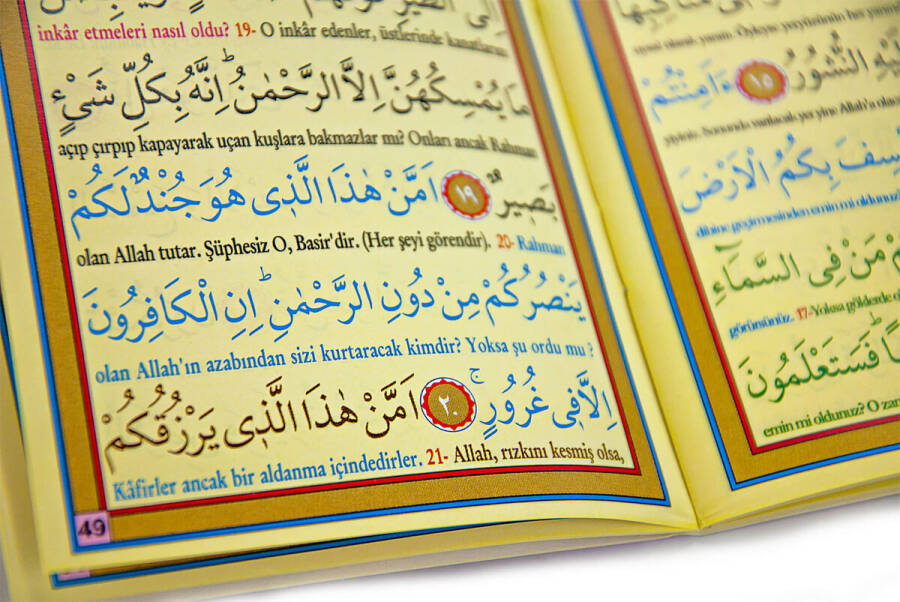 inkâr etmeleri nasıl oldu? 19- O inkâr edenler, üstlerinde kanatlarını
مَا يُمْسِكُهُنَّ اِلَّا الرَّحْمٰنُ اِنَّهُ بِكُلِّ شَيْءٍ
açıp çırpıp kapayarak uçan kuşlara bakmazlar mı? Onları ancak Rahman
بَصِيرٌ ١٩ اَمَّنْ هٰذَا الَّذِى هُوَ جُنْدٌ لَكُمْ
olan Allah tutar. Şüphesiz O, Basir'dir. (Her şeyi görendir). 20- Rahman
يَنْصُرُكُمْ مِنْ دُونِ الرَّحْمٰنِ اِنِ الْكَافِرُونَ
olan Allah'ın azabından sizi kurtaracak kimdir? Yoksa şu ordu mu?
اِلَّا فِى غُرُورٍ ٢٠ اَمَّنْ هٰذَا الَّذِى يَرْزُقُكُمْ
Kâfirler ancak bir aldanma içindedirler. 21- Allah, rızkını kesmiş olsa,
49
النُّشُورُ ١٥ ءَاَمِنْتُمْ
yiyiniz. Sonunda varılacak yer yine Allah'a
بِكُمُ الْاَرْضَ
dibine geçirmesinden emin mi oldunuz?
مَنْ فِى السَّمَاءِ
görürsünüz. 17- Yoksa göklerde
فَسَتَعْلَمُونَ
emin mi oldunuz? O